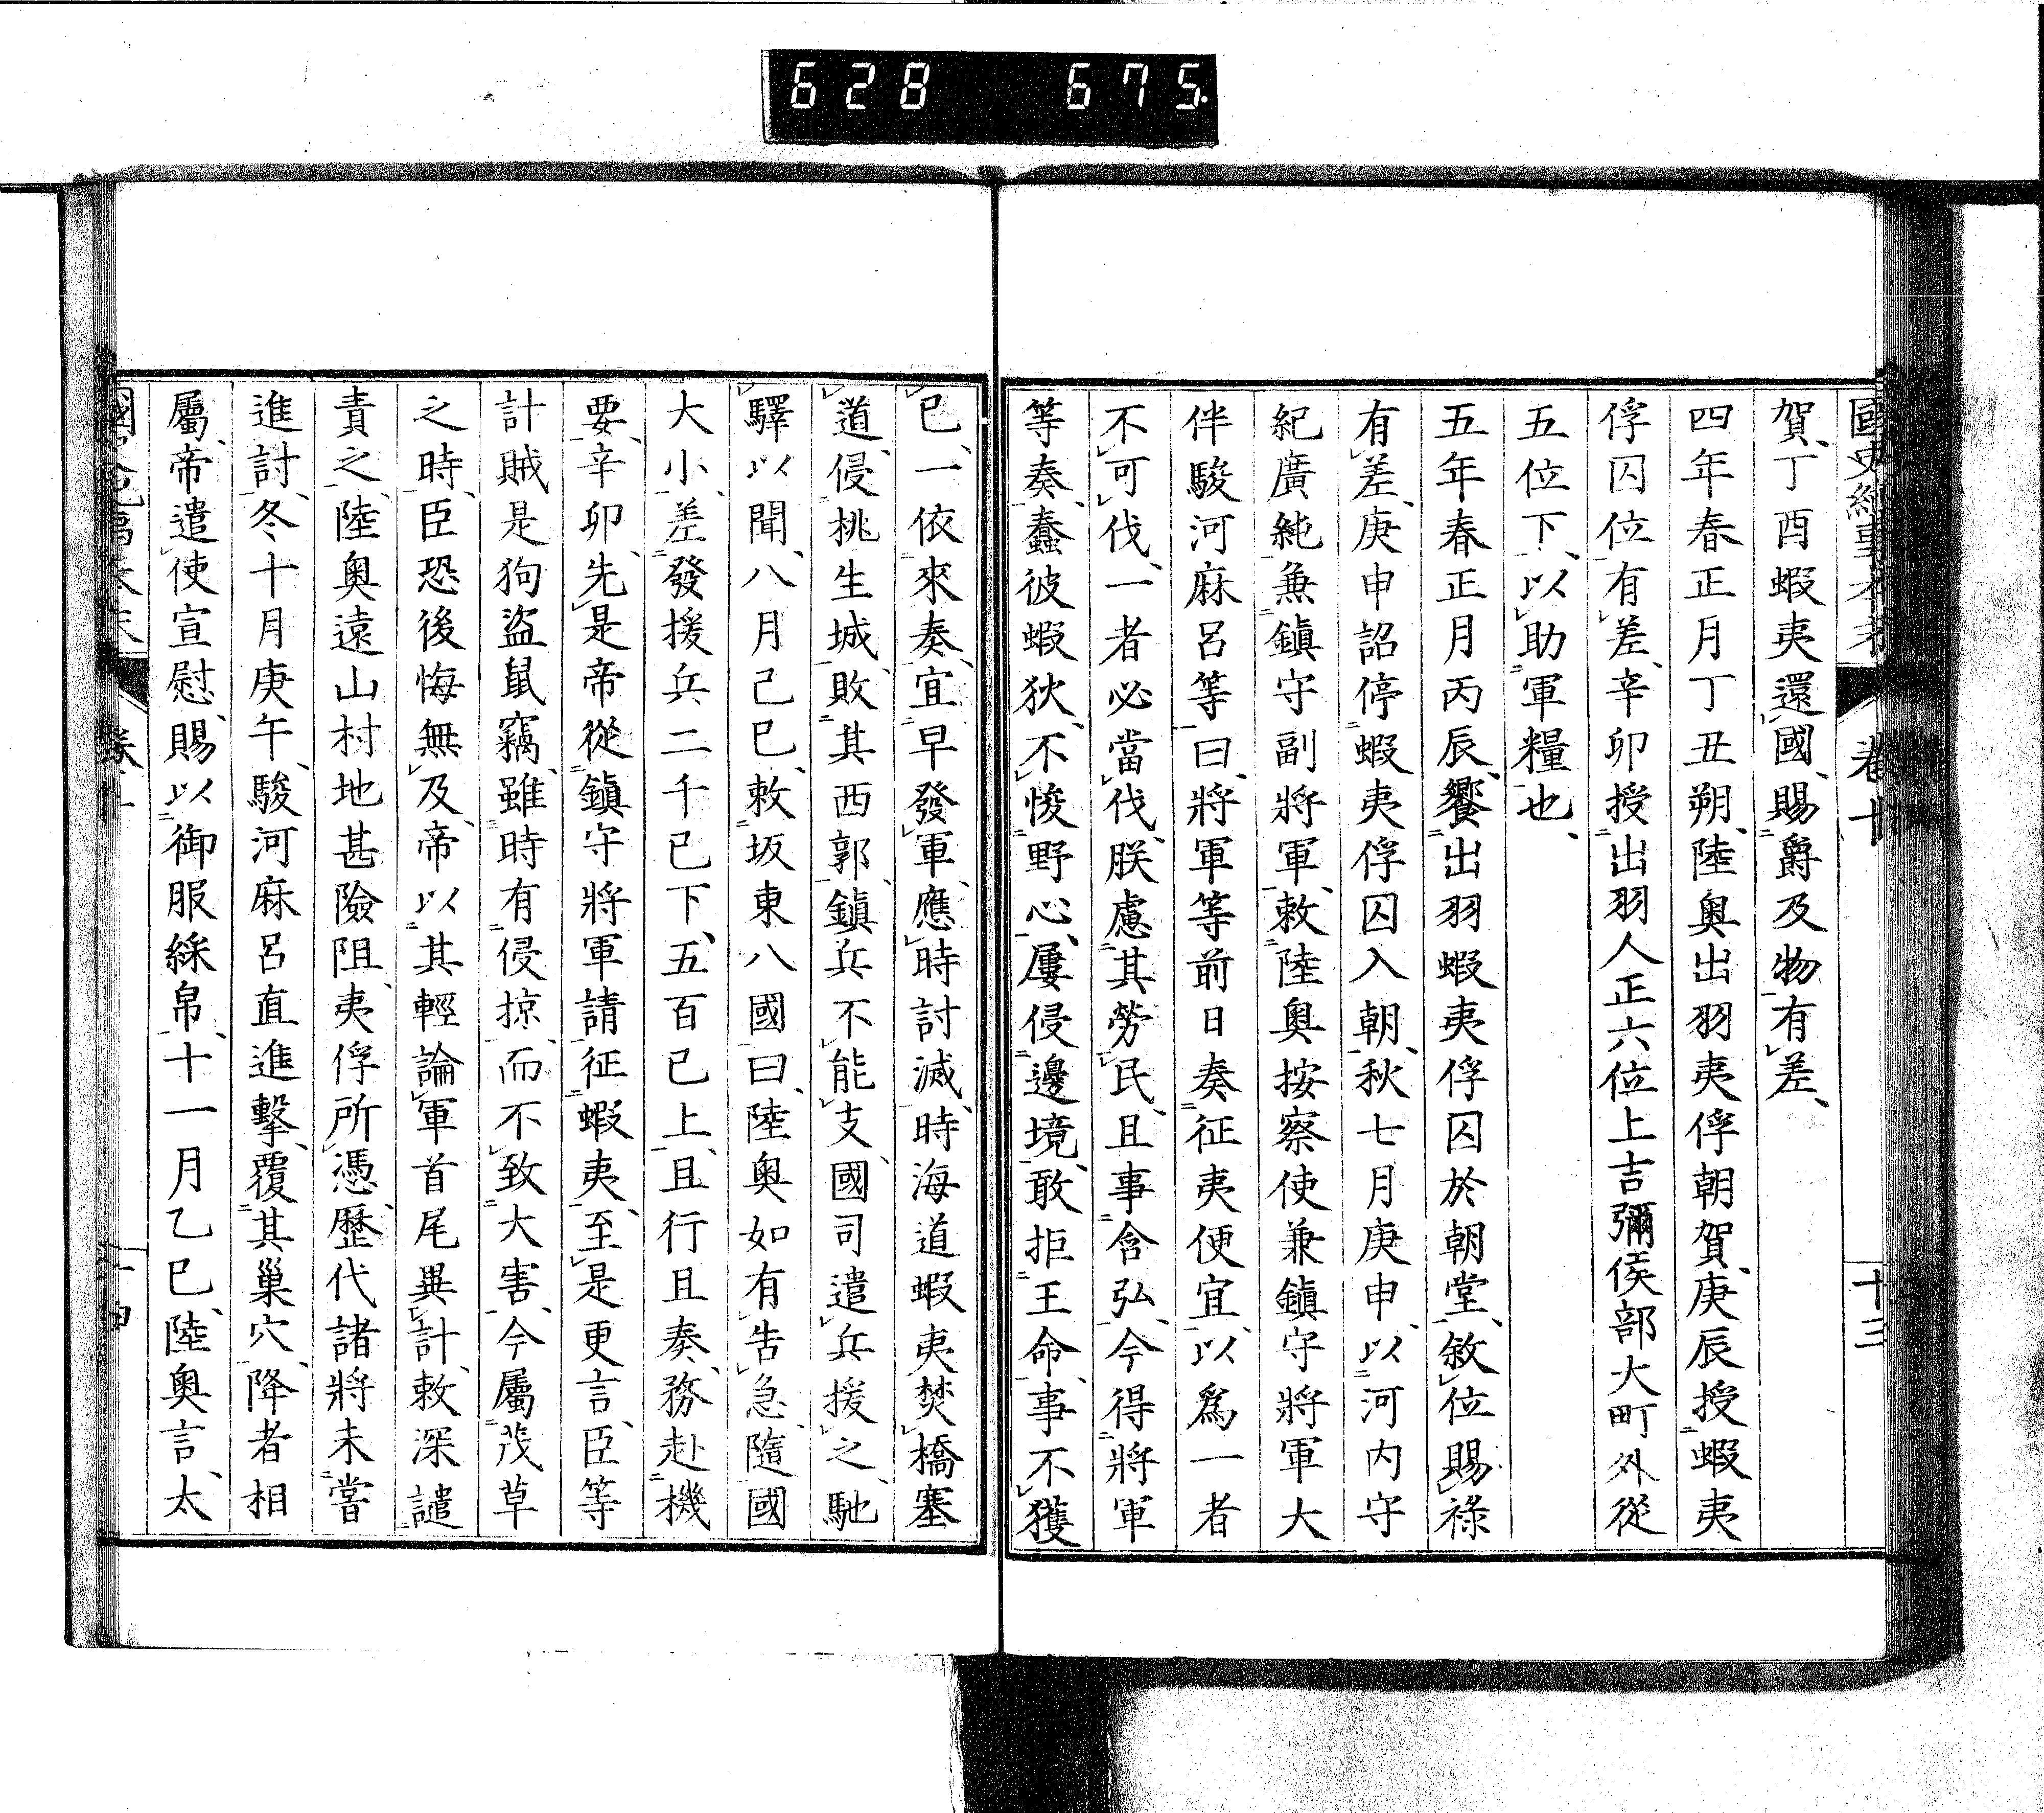 628 675.
國史紀事本末 卷十 十三
賀、丁酉蝦夷還國、賜爵及物有差、
四年春正月丁丑朔、陸奥出羽夷俘朝賀、庚辰授蝦夷
俘囚位有差、辛卯授出羽人正六位上吉彌侯部大町外從
五位下、以助軍糧也、
五年春正月丙辰、饗出羽蝦夷俘囚於朝堂、敘位賜祿
有差、庚申詔停蝦夷俘囚入朝、秋七月庚申、以河内守
紀廣純兼鎭守副將軍、敕陸奥按察使兼鎭守將軍大
伴駿河麻呂等曰、將軍等前日奏征夷便宜、以爲一者
不可伐、一者必當伐、朕慮其勞民、且事含弘、今得將軍
等奏、蠢彼蝦狄、不悛野心、屢侵邊境、敢拒王命、事不獲
已、一依來奏、宜早發軍、應時討滅、時海道蝦夷焚橋塞
道、侵桃生城、敗其西郭、鎭兵不能支、國司遣兵援之、馳
驛以聞、八月己巳、敕坂東八國曰、陸奥如有告急、隨國
大小、差發援兵二千已下、五百已上、且行且奏、務赴機
要、辛卯、先是帝從鎭守將軍請征蝦夷、至是更言、臣等
計賊是狗盜鼠竊、雖時有侵掠、而不致大害、今屬茂草
之時、臣恐後悔無及、帝以其輕論軍首尾異計、敕深譴
責之、陸奥遠山村地甚險阻、夷俘所憑、歷代諸將未嘗
進討、冬十月庚午、駿河麻呂直進擊、覆其巢穴、降者相
屬、帝遣使宣慰、賜以御服綵帛、十一月乙巳、陸奥言、太